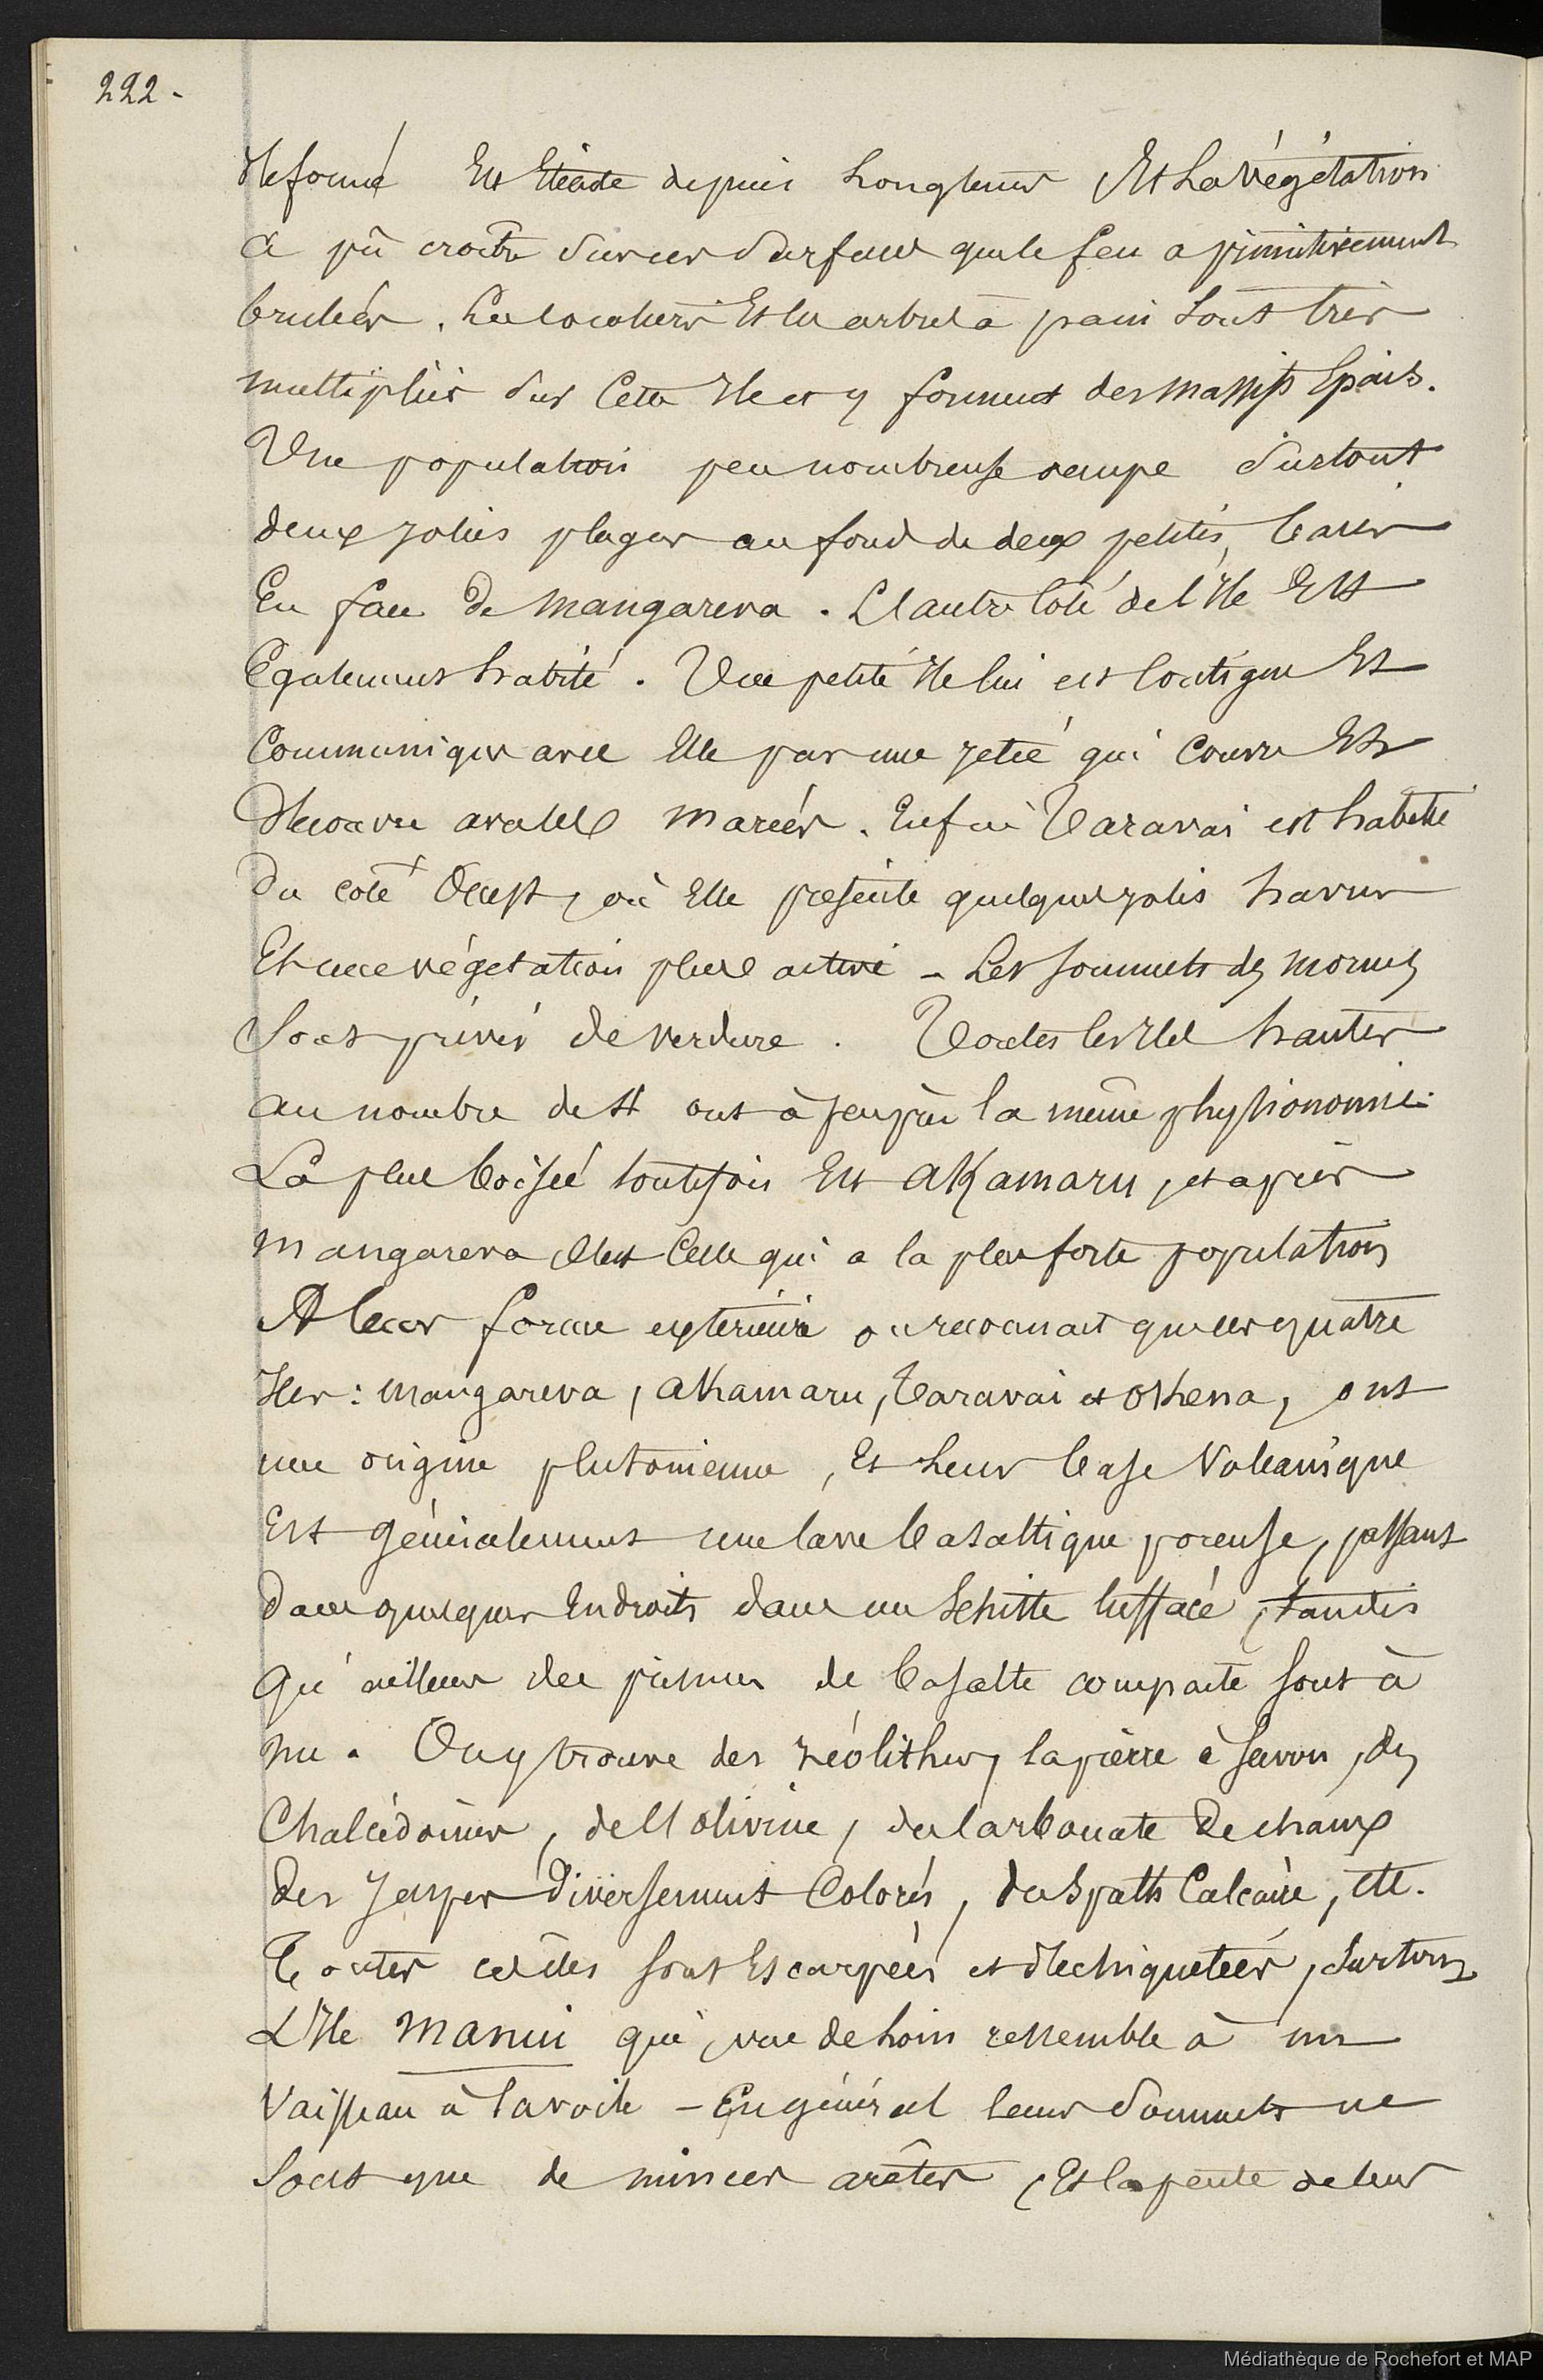 222 -
déformé Est Eteinte depuis Longtems Et La Végétation
a pû croître Sur ces Surfaces que le feu a primitivement
brulées. Les cocotiers Et les arbres à pain Sont très
multipliés Sur Cette Ile et y forment des massifs Epais.
Une population peu nombreuse occupe Surtout
deux jolies plages au fond de deux petites baies
En face de Mangareva. L'autre Coté de l'Ile Est
Egalement habité. Une petite Ile lui est Contigue Et
Communique avec Elle par une jetée qui Couvre Et
Découvre avec les Marées. Enfin Taravai est habitée
Du coté Ouest, où Elle présente quelques jolis havres
Et une végétation plus active - Les Sommets des mornes
Sont privés de verdure. Toutes les Iles hautes
au nombre de 4 ont à peu près la même physionomie.
La plus boisée toutefois Est AKamaru, et après
Mangareva c'est Celle qui a la plus forte population
A leur forme extérieure on reconnait que ces quatre
Iles : Mangareva, AKamaru, Taravai et oKena, ont
une origine plutonienne, Et Leur base Volcanique
Est généralement une lave basaltique poreuse, passant
Dans quelques Endroits dans un Schitte tuffacé, tandis
qu'ailleurs des prismes de basalte compacte Sont à
nu. On y trouve des Zéolithes, la pierre à Savon, des
Chalcédoines, de l'olivine, du Carbonate De chaux
Des Jaspes Diversement Colorés, du Spath Calcaire, ete.
Toutes ces îles Sont Escarpées et Déchiquetées, Surtout
L'Ile Manui qui, vue de Loin ressemble à un
Vaisseau à la voile - En général leurs Sommets ne
Sont que de minces arêtes, Et la pente de leur
Médiathèque de Rochefort et MAP